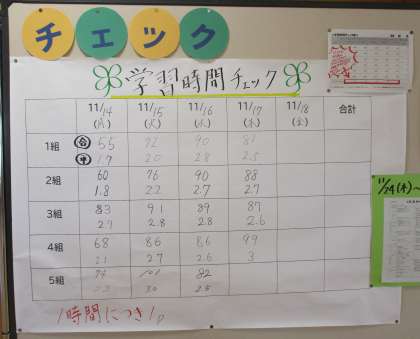 チェック
学習時間チェック
11/14(月) 11/15(火) 11/16(水) 11/17(木) 11/18(金) 合計
1組 合 55 72 90 81
申 1.9 2.0 2.8 2.5
2組 60 76 90 88
1.8 2.2 2.7 2.7
3組 83 91 89 87
2.7 2.8 2.8 2.6
4組 68 86 86 99
2.1 2.7 2.6 3
5組 94 100 82
3.0 2.5
1時間につき1p
11/24(木)~